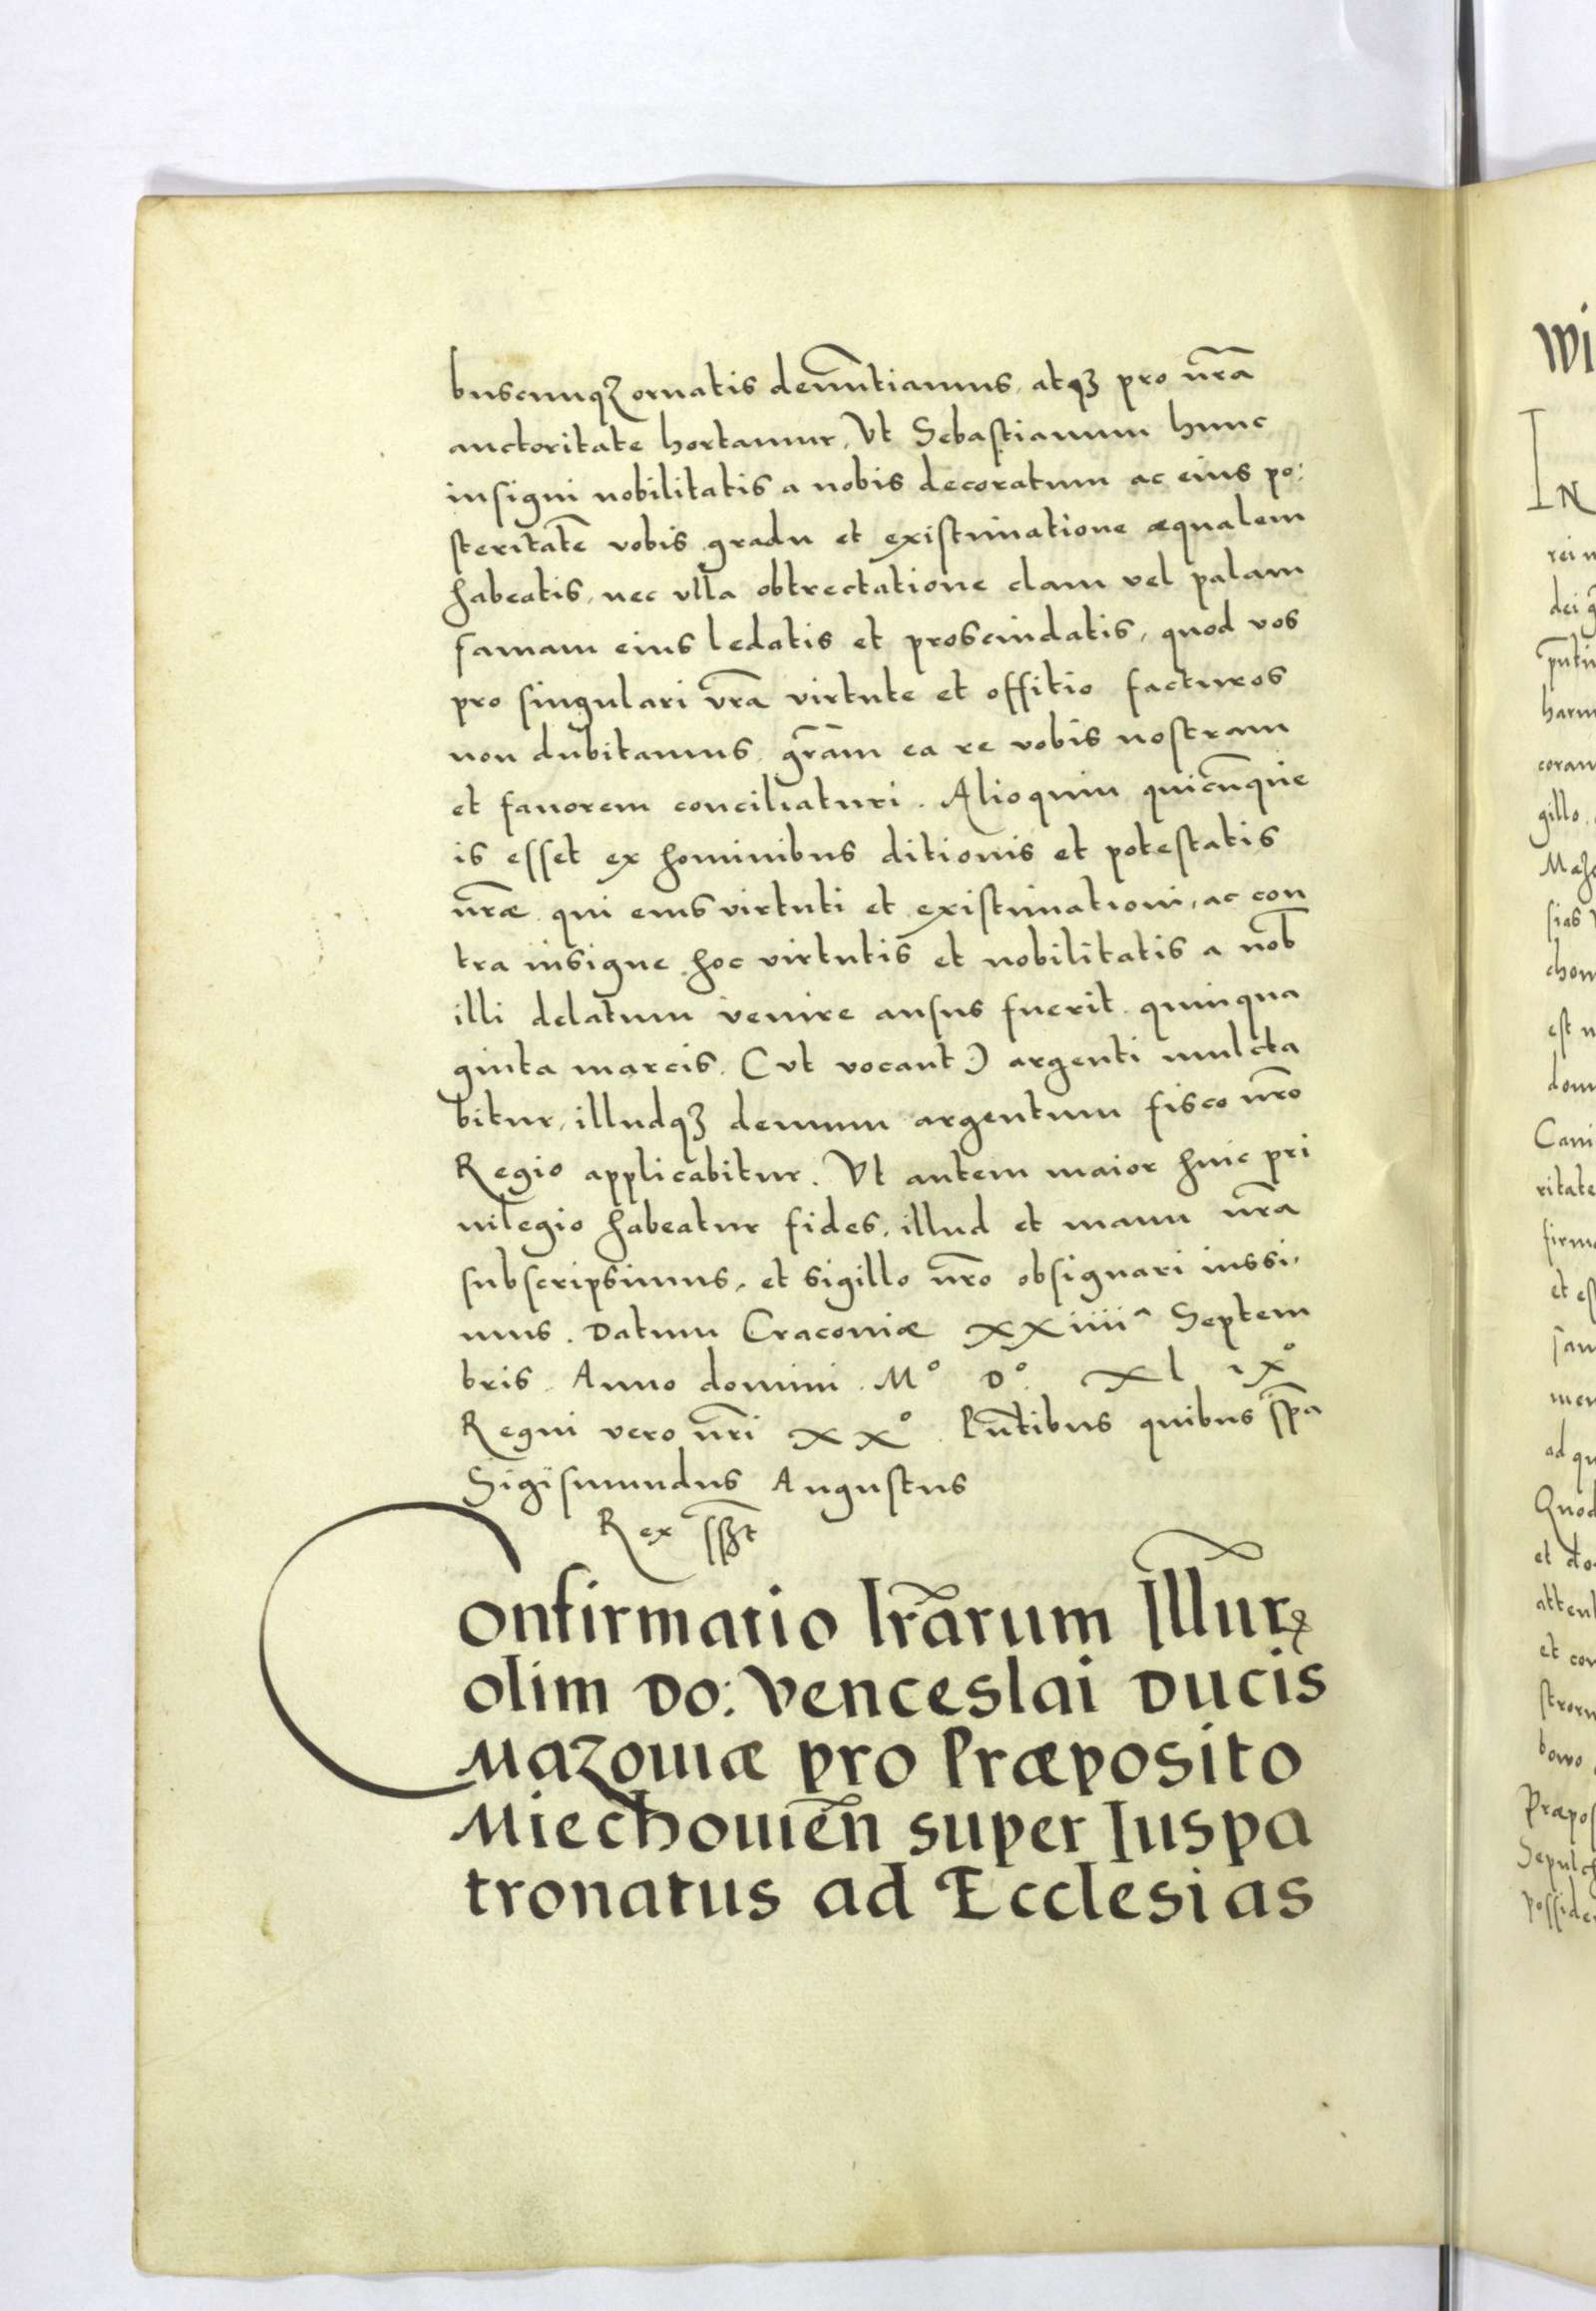 buscunqꝫ ornatis denũtiamus, atqꝫ pro nr̃a
auctoritate hortamur, Vt Sebastianum hunc
insigni nobilitatis a nobis decoratum ac eius po:
steritatẽ vobis gradu et existimatione æqualem
habeatis, nec vlla obtrectatione clam vel palam
famam eius ledatis et proscindatis, quod vos
pro singulari vr̃a virtute et offitio facturos
non dubitamus, gr̃am ea re vobis nostram
et fauorem conciliaturi. Alioquin quicũque
is esset ex hominibus ditionis et potestatis
nr̃æ qui eius virtuti et existimationi, ac con
tra insigne hoc virtutis et nobilitatis a nob̃
illi delatum venire ausus fuerit quinqua
ginta marcis. (vt vocant:) argenti mulcta
bitur, illudqꝫ demum argentum fisco nr̃o
Regio applicabitur. Vt autem maior huic pri
uilegio habeatur fides, illud et manu nr̃a
subscripsimus, et sigillo nr̃o obsignari iussi,
mus. Datum Cracouiæ XXiiiiᵃ Septem
bris. Anno domini. M° D°. Xl ıx°
Regni vero nr̃i XX°. Pñtibus quibus sp̃a
Sigismundus Augustus
Rex ssꝫt
Confirmatio lr̃arum Illurꝝ
olim Do: Venceslai Ducis
Mazouiæ pro Præposito
Miechouieñ super Iuspa
tronatus ad Ecclesias
Wi
IN
rei
dei
pñti
coram
gillo
sias
est
dom
Cani
ritate
firm
et
ad qu
Quod
et
atten
et con
bono
Præpos
Sepulch
Posside